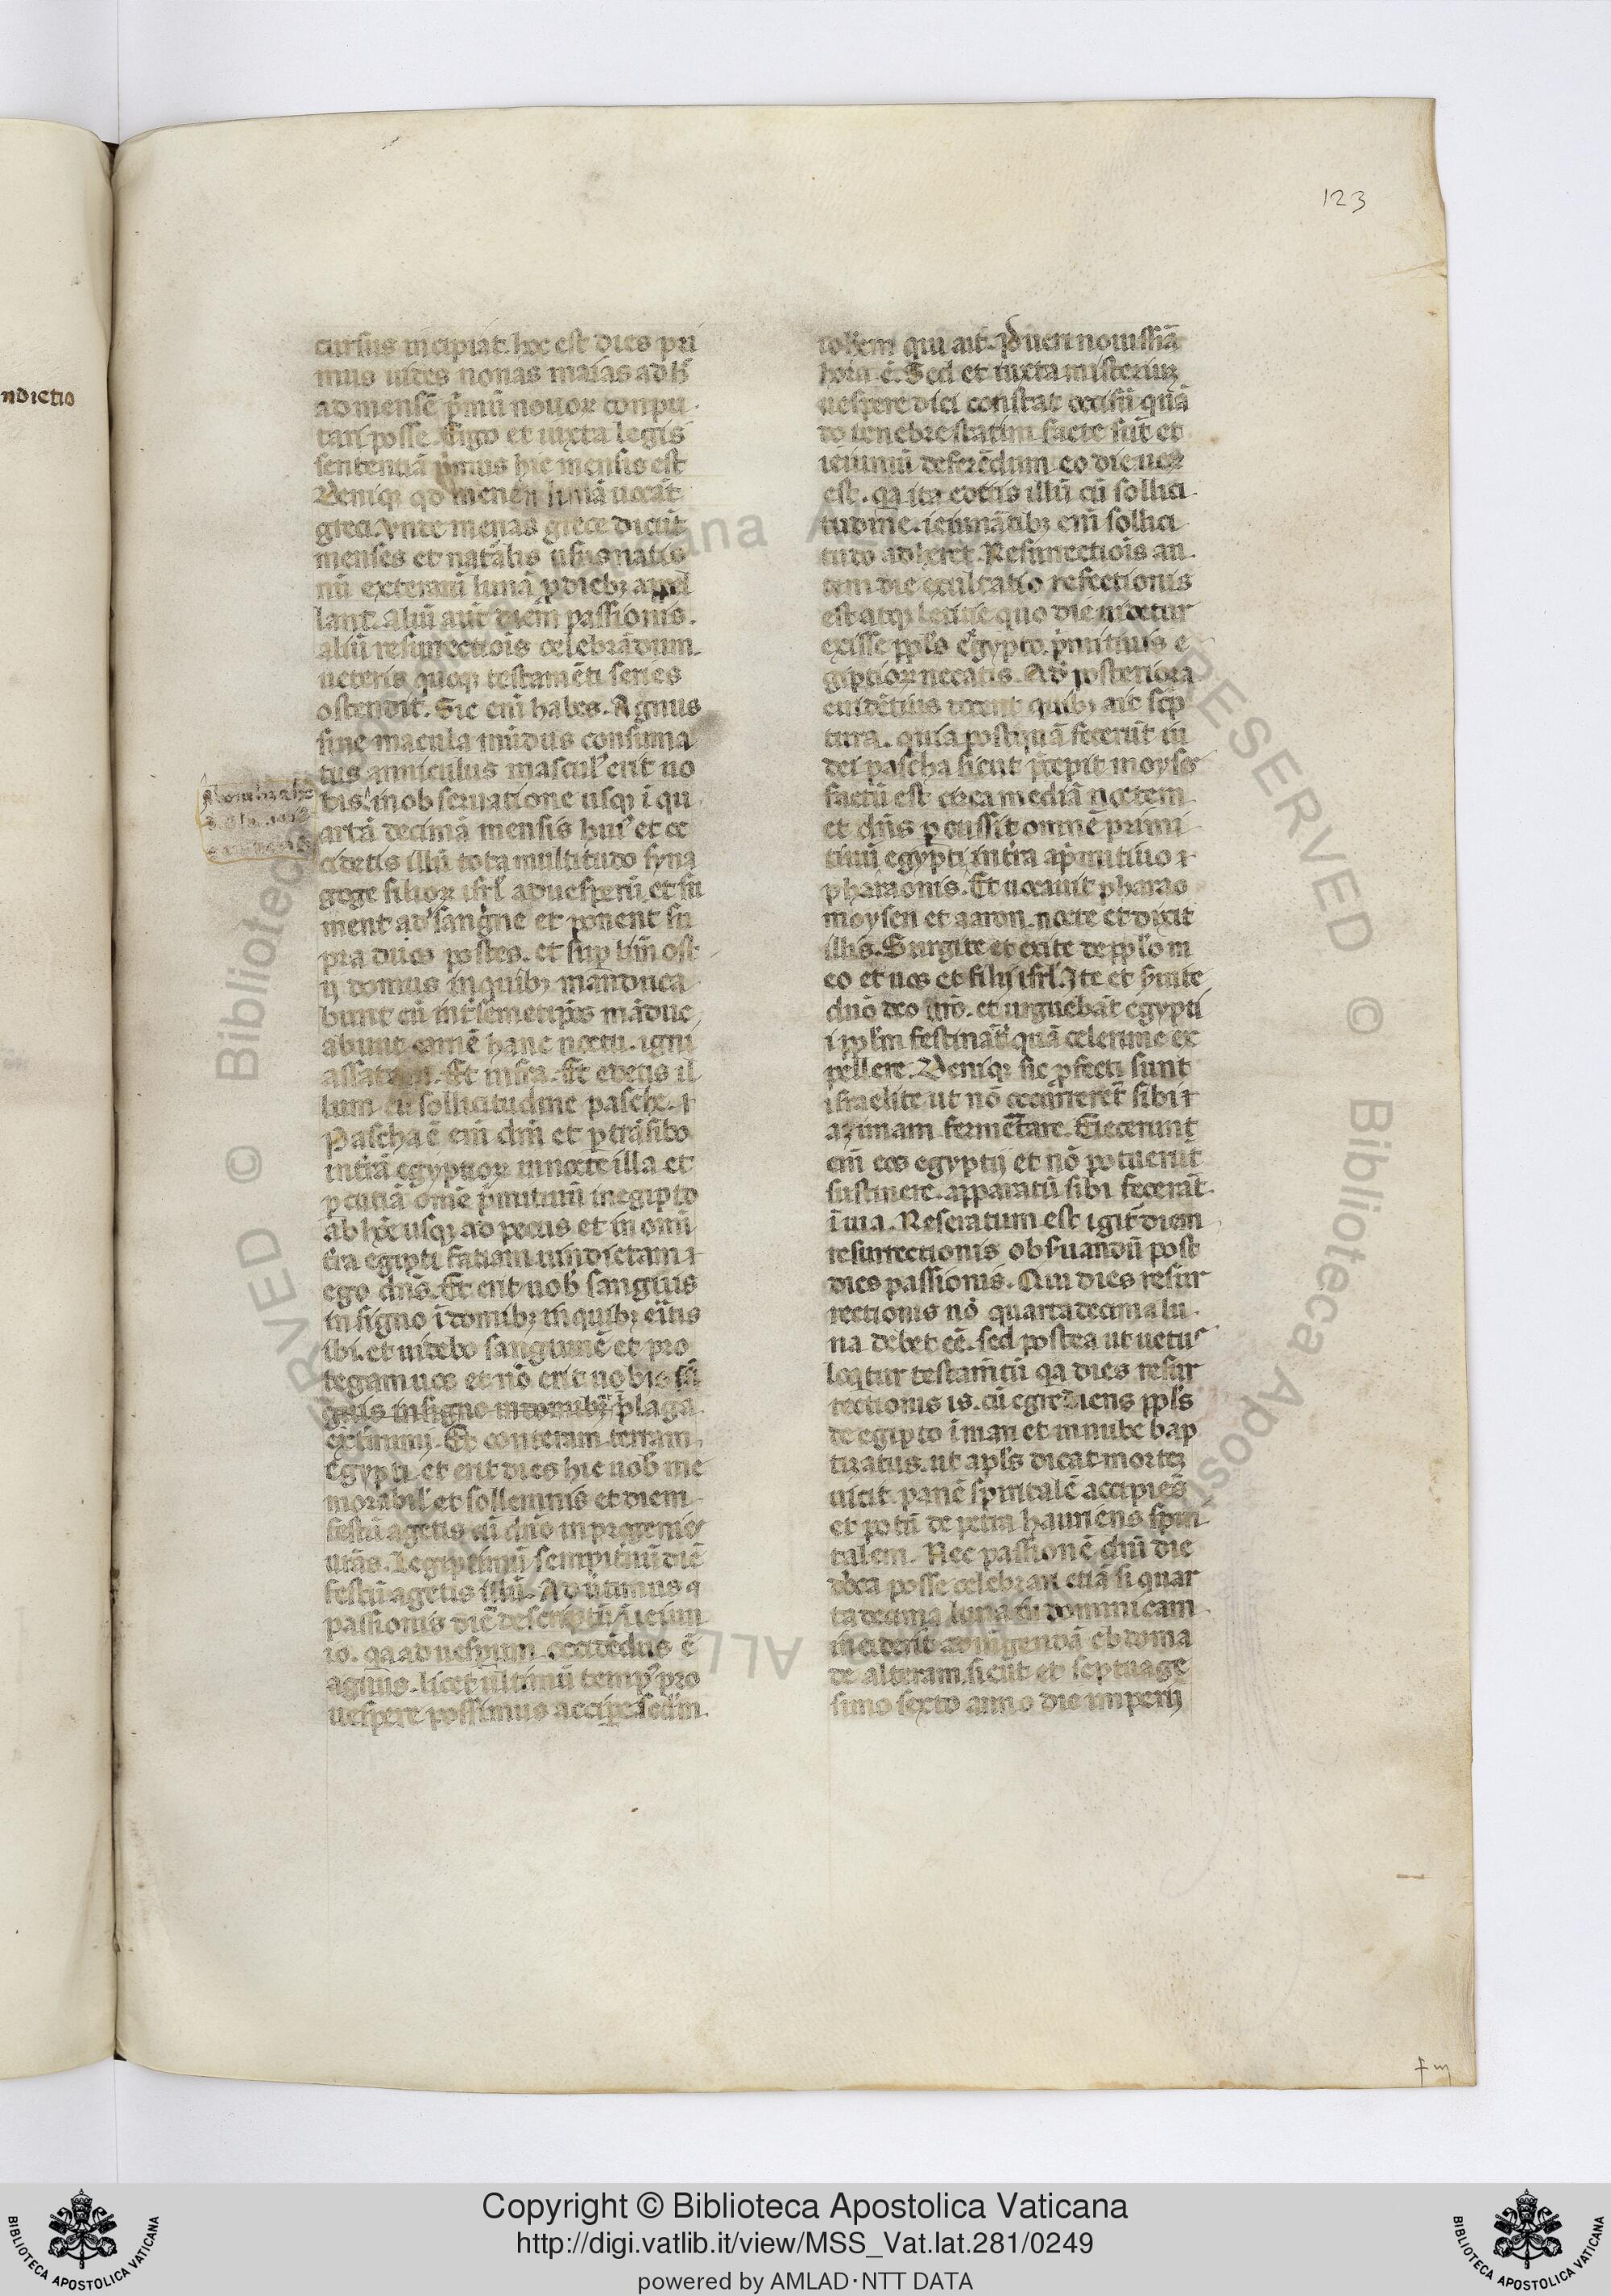 ndictio
123
cursus incipiat. hoc est dies pri
mus uides nonas maias ad h
ad mensē p̄mū nouoꝝ conpu
tari posse. Ergo et iuxta legis
sententiā p̄mus hic mensis est
Deniqꝫ qd menen lunā uocāt
greci. vnde menas grece dicūt
menses et natālis usus natio
nū exterarū lunā p diebꝫ appel
lant. aliū aūt diem passionis.
aliū resurrectiōis celebrādum.
ueteris quoqꝫ testamēti series
ostendit. Sic enī habes. Agnus
sine macula mūdus consuma
tus anniculus mascul' erit uo
bis in obseruatione usqꝫ ī qu
artā decimā mensis hui' et oc
cidetis illū tota multitudo syna
goge filioꝝ isrl' ad uesperū et su
ment ad sangne et ponent su
pra duos postes. et sup lim̄ ost
ij domus in quibꝫ manduca
bunt eū int semetip̄os māduc
abunt carnē hanc noctu. igni
assatam. Et infra. Et edetis il
lum cū sollicitudine pasche. ⁊
Pascha ē enī dn̄i et p trāsibo
in tr̄a egyptioꝝ in nocte illa et
pcutiā omē p̄mitiuū in egipto
ab hoīe usqꝫ ad pecus et in omī
tr̄a egipti fatiam uindictam ⁊
ego dn̄s. Et erit uob sanguis
in signo ī domibꝫ in quibꝫ eritis
ibi. et uidebo sanguinē et pro
tegam uos et nō erit uobis sā
guis in signo in domibꝫ plaga
extimnij. Et conteram terram
egypti et erit dies hic uob me
morabil' et sollemnis et diem
festū agetis eū dn̄o in progenies
urās. Legiptimū sempitnū diē
festū agetis illū. Aduertimus q
passionis diē descriptū ī ieiun
io. qa ad uesperum occidēdus ē
agnus. licet ultimū temp' pro
uespere possimus accipe sedm
iohem qui ait. Pueri nouissīā
hora ē. Sed et iuxta misteriuꝫ
uespere dici constat occisū quā
do tenebre statim facte sūt et
ieiuniū deferēdum eo die uerꝫ
est. qa ita edetis illū cū sollici
tudine. ieiunātibꝫ enī sollici
tudo adheret. Resurrectiōis au
tem die exultatio refectionis
est atqꝫ letitie quo die uidetur
exisse ppls egypto. p̄mitiuis e
giptioꝝ necatis. Ad posteriora
euidētius docent quibꝫ ait scp̄
tura. quia postquā fecerūt iu
dei pascha sicut p̄cepit moyses
factū est circa mediā noctem
et dn̄s pcussit omnē primi
tiuū egypti in tr̄a a p̄mitiuo ⁊
pharaonis. Et uocauit pharao
moysen et aaron. nocte et dixit
illis. Surgite et exite de pplo m
eo et uos et filij isrl'. Ite et seruite
dn̄o deo uro. et urguebāt egypti
i pplm festinātꝫ quā celerrime ex
pellere. Deniqꝫ sic pfecti sunt
israelite ut nō occurreret sibi ⁊
azimam fermētare. Eiecerunt
enī eos egyptij et nō potuerūt
sustinere. apparatū sibi fecerāt
ī uia. Reseratum est igit diem
resurrectionis obsuandū post
dies passionis. Qui dies resur
rectionis nō quartadecima lu
na debet eē. sed postea ut uetus
loqtur testam̄tū qa dies resur
rectionis is. cū egrediens ppls
de egipto ī mari et in nube bap
tizatus. ut apls dicat morteꝫ
uicit. panē spiritalē accipiēs
et potū de petra hauriens spiri
talem. Nec passionē dn̄i die
dn̄ica posse celebrari etiā si quar
tadecima luna tū dominicam
inciderit adiūgendā ebdoma
de alteram. sicut et septuage
simo sexto anno die imperij
f iij
Copyright © Biblioteca Apostolica Vaticana
http://digi.vatlib.it/view/MSS_Vat.lat.281/0249
powered by AMLAD·NTT DATA
BIBLIOTECA APOSTOLICA VATICANA
BIBLIOTECA APOSTOLICA VATICANA